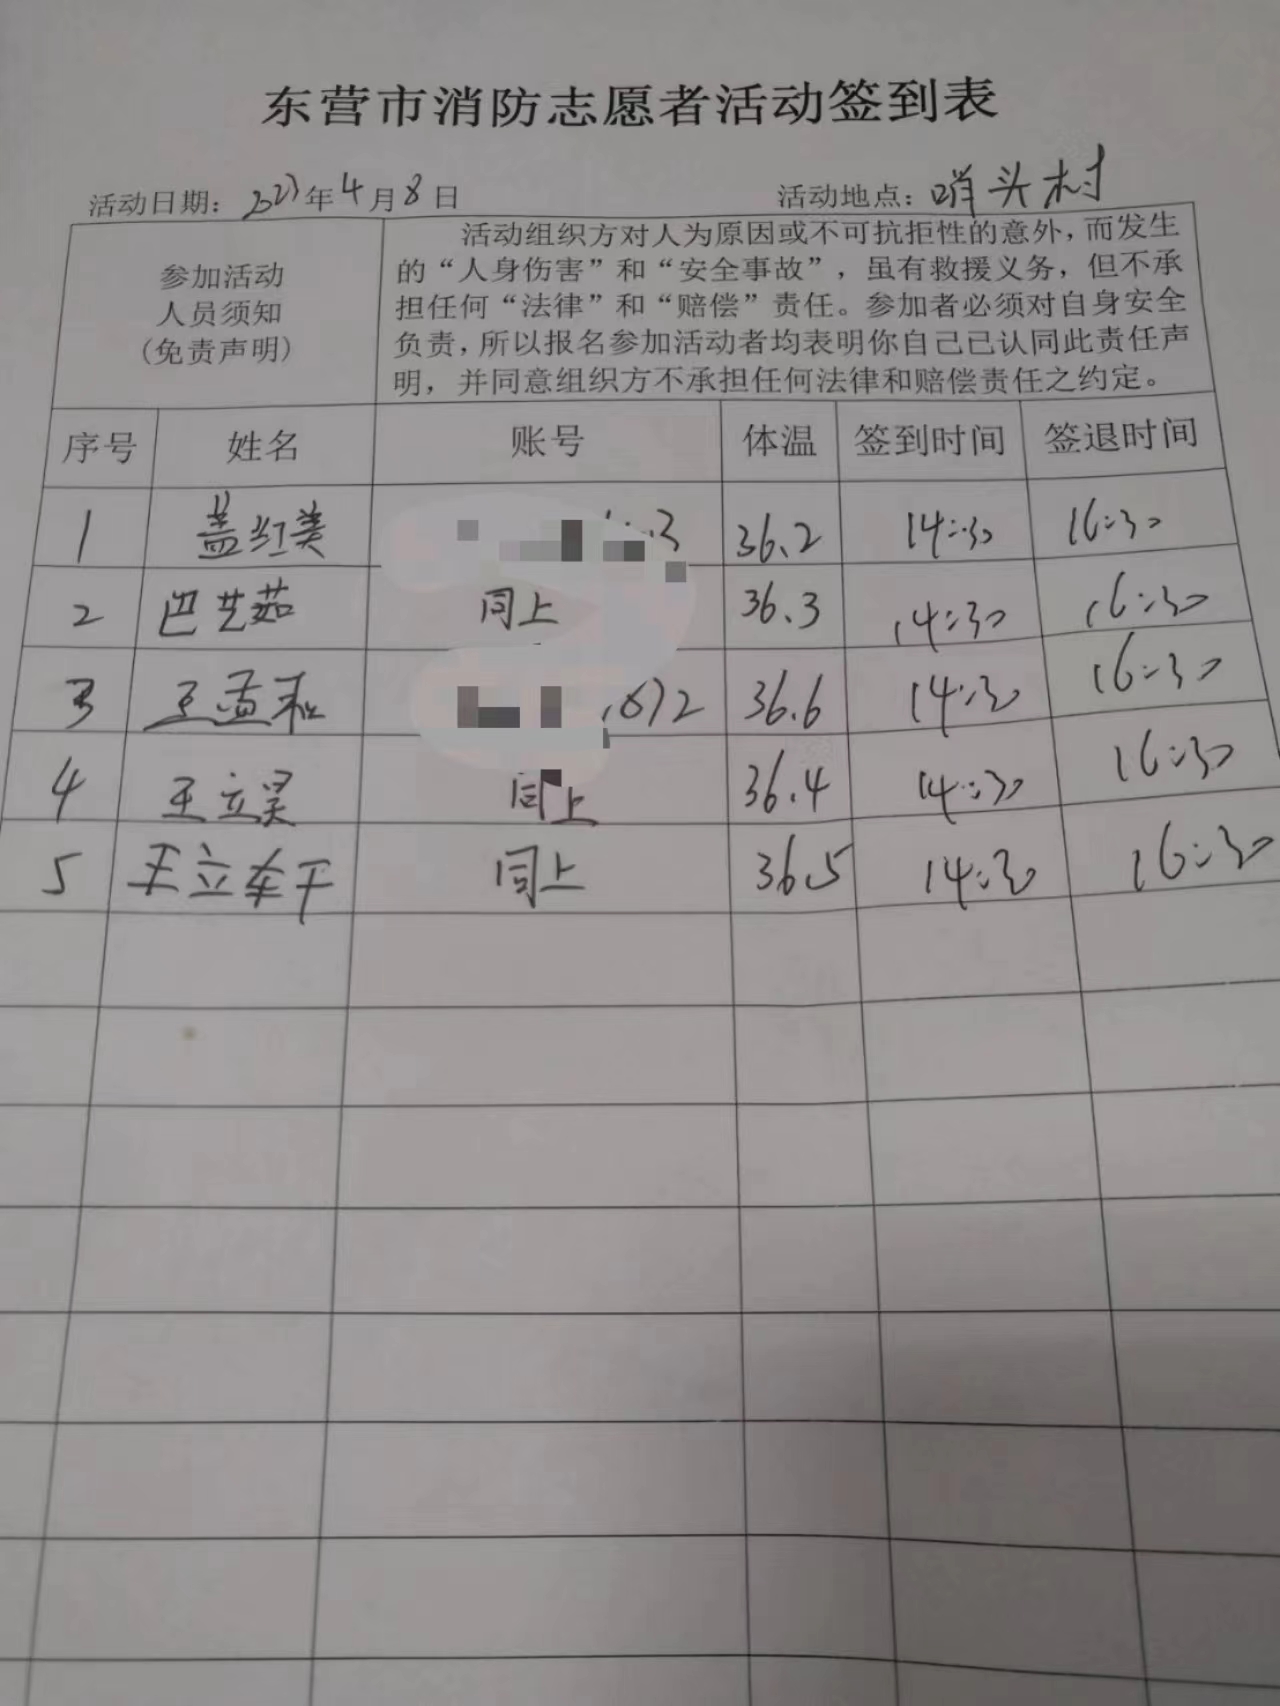 东营市消防志愿者活动签到表
活动日期：2023年4月8日 活动地点：哨头村
参加活动
人员须知
(免责声明)
活动组织方对人为原因或不可抗拒性的意外，而发生
的“人身伤害”和“安全事故”，虽有救援义务，但不承
担任何“法律”和“赔偿”责任。参加者必须对自身安全
负责，所以报名参加活动者均表明你自己已认同此责任声
明，并同意组织方不承担任何法律和赔偿责任之约定。
序号 姓名 账号 体温 签到时间 签退时间
1 盖红美 36.2 14:30 16:30
2 巴艺茹 同上 36.3 14:30 16:30
3 王孟 36.6 14:30 16:30
4 王立昊 同上 36.4 14:30 16:30
5 王立轩 同上 36.5 14:30 16:30